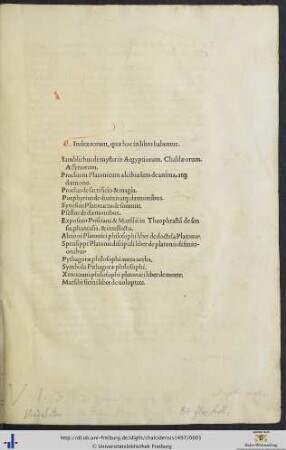 Index eorum, quae hoc in libro habentur.
Iamblichus de mysteriis Aegyptiorum. Chaldaeorum.
Assyriorum.
Proclus in Platonicum alcibiadem de anima, atq
daemone.
Proclus de sacrificio & magia.
Porphyrius de diuinis atq daemonibus.
Synesius Platonicus de somniis.
Psellus de daemonibus.
Expositio Prisciani & Marsilii in Theophrastu de sen
su, phantasia, & intellectu.
Alcinoi Platonici philosophi liber de doctria Platonis.
Speusippi Platonis discipuli liber de platonis definiti-
onibus.
Pythagorae philosophi aurea uerba.
Symbola Pithagorae philosophi.
Xenocratis philosophi platonici liber de morte.
Marsilii ficini liber de uoluptate.
http://dl.ub.uni-freiburg.de/diglit/chalcidensis1497/0005
© Universitätsbibliothek Freiburg